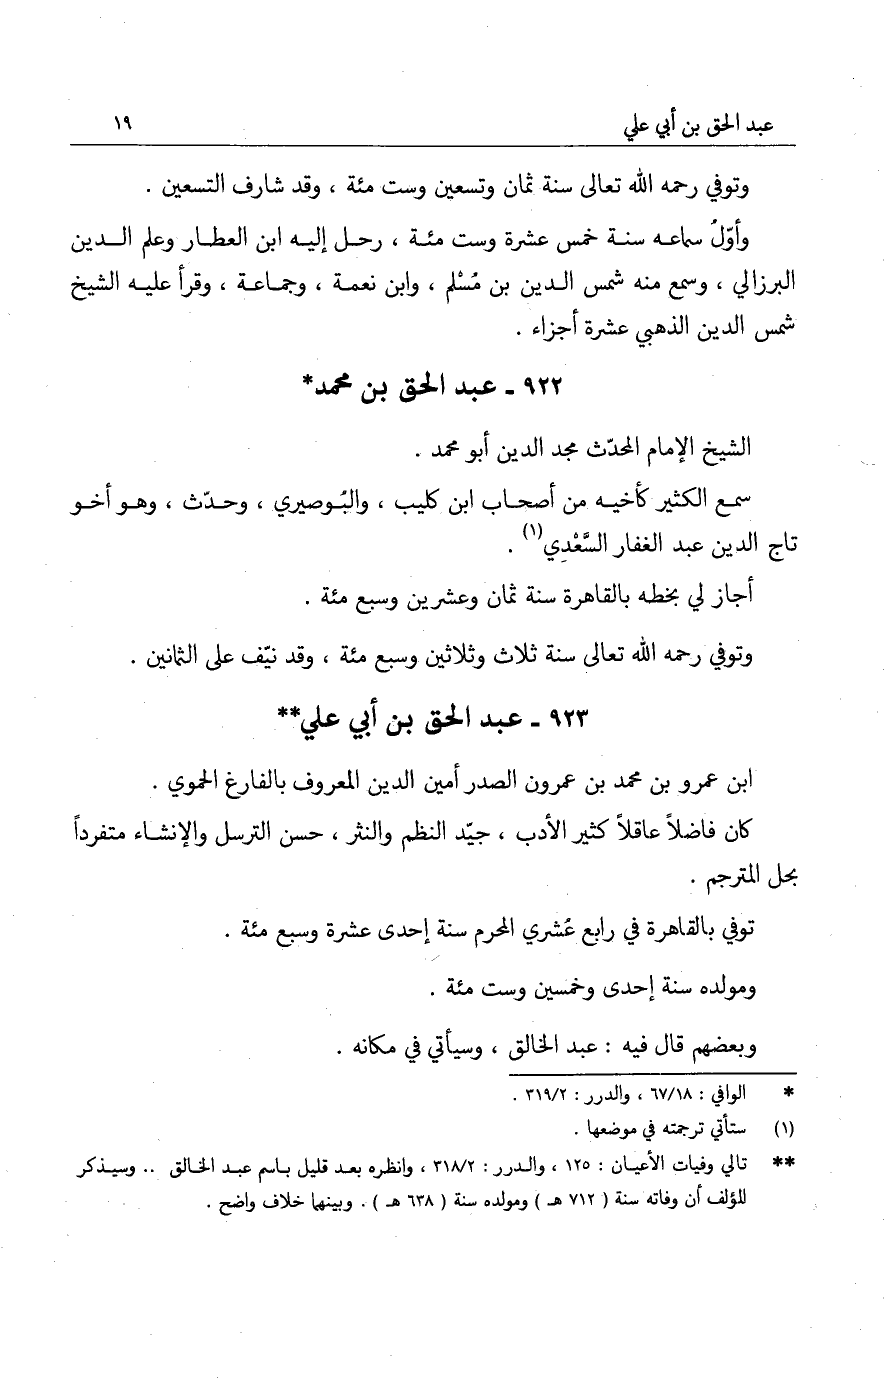 عبد الحق بن أبي علي ١٩
وتوفي رحمه الله تعالى سنة ثمان وتسعين وست مئة ، وقد شارف التسعين .
وأوّلُ سماعه سنة خمس عشرة وست مئة ، رحل إليه ابن العطار وعلم الدين
البرزالي ، وسمع منه شمس الدين بن مُسْلم ، وابن نعمة ، وجماعة ، وقرأ عليه الشيخ
شمس الدين الذهبي عشرة أجزاء .
٩٢٢ ـ عبد الحق بن محمد*
الشيخ الإمام المحدّث مجد الدين أبو محمد .
سمع الكثير كأخيه من أصحاب ابن كليب ، والبُوصيري ، وحدّث ، وهو أخو
تاج الدين عبد الغفار السَّعْدِي(١) .
أجاز لي بخطه بالقاهرة سنة ثمان وعشرين وسبع مئة .
وتوفي رحمه الله تعالى سنة ثلاث وثلاثين وسبع مئة ، وقد نيّف على الثمانين .
٩٢٣ ـ عبد الحق بن أبي علي**
ابن عمرو بن محمد بن عمرون الصدر أمين الدين المعروف بالفارغ الحموي .
كان فاضلاً عاقلاً كثير الأدب ، جيّد النظم والنثر ، حسن الترسل والإنشاء متفرداً
بحل المترجم .
توفي بالقاهرة في رابع عُشري المحرم سنة إحدى عشرة وسبع مئة .
ومولده سنة إحدى وخمسين وست مئة .
وبعضهم قال فيه : عبد الخالق ، وسيأتي في مكانه .
* الوافي : ٦٧/١٨ ، والدرر : ٣١٩/٢ .
(١) ستأتي ترجمته في موضعها .
** تالي وفيات الأعيان : ١٢٥ ، والدرر : ٣١٨/٢ ، وانظره بعد قليل باسم عبد الخالق .. وسيذكر
المؤلف أن وفاته سنة ( ٧١٢ هـ ) ومولده سنة ( ٦٣٨ هـ ) . وبينهما خلاف واضح .